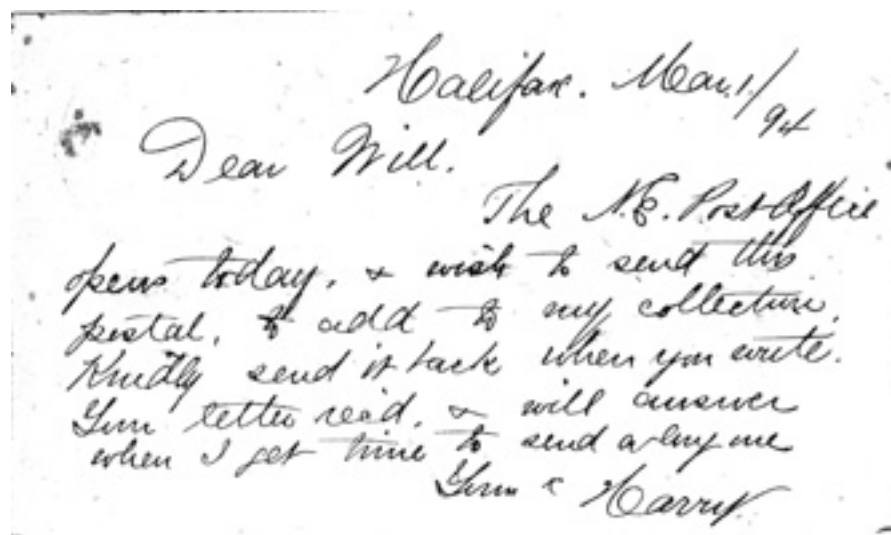 Halifax. Mar. 1./94
Dear Will.
The N.E. Post Office
opens today, & wish to send this
postal, to add to my collection.
Kindly send it back when you write.
Your letter rec'd. & will answer
when I get time to send a long one
Yours Harry